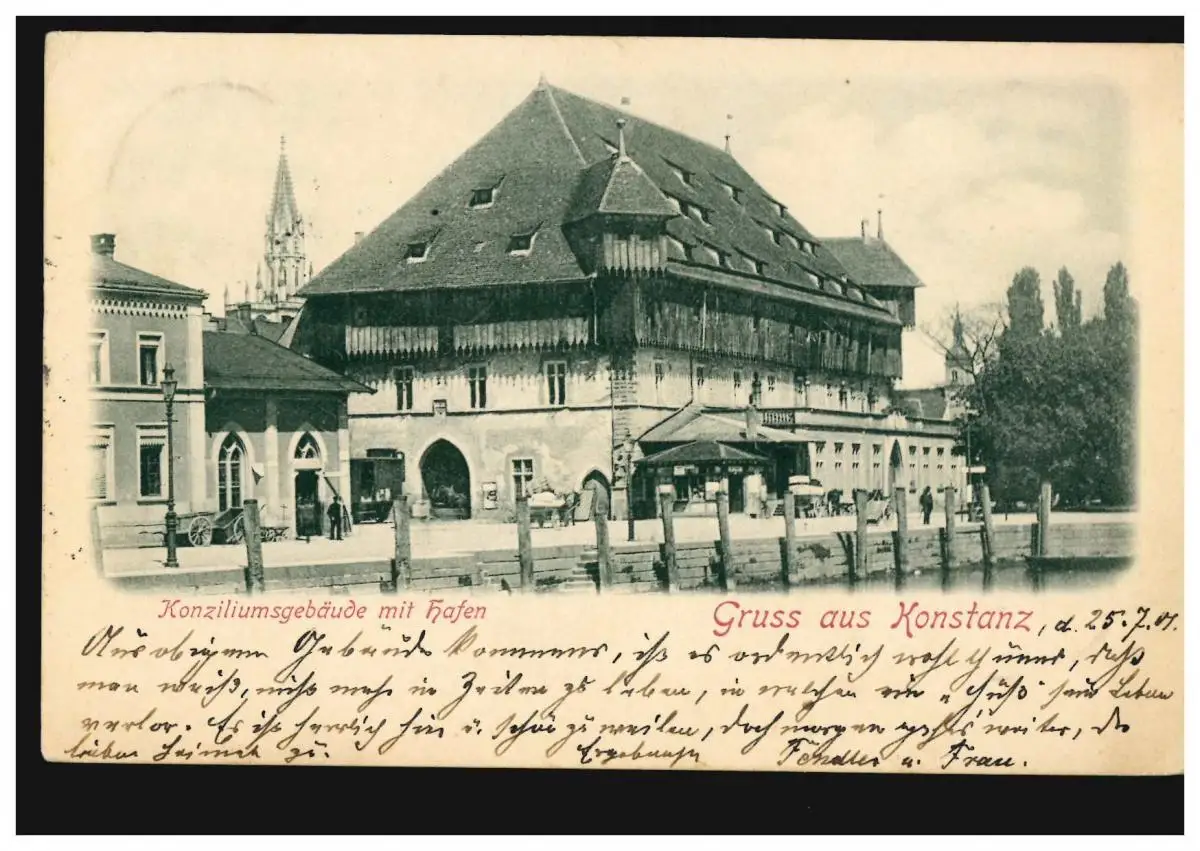 Konziliumsgebäude mit Hafen
Gruss aus Konstanz, d. 25.7.01.
Aus obigem Gebäude kommend, ist es ordentlich wohlthuend, daß
man weiß, nicht mehr in Zeiten zu leben, in welchen ein „Huß“ sein Leben
verlor. Es ist herrlich hier u. schön zu weilen, doch morgen gehts weiter, der
lieben Heimat zu. Ergebenst Fendler u. Frau.